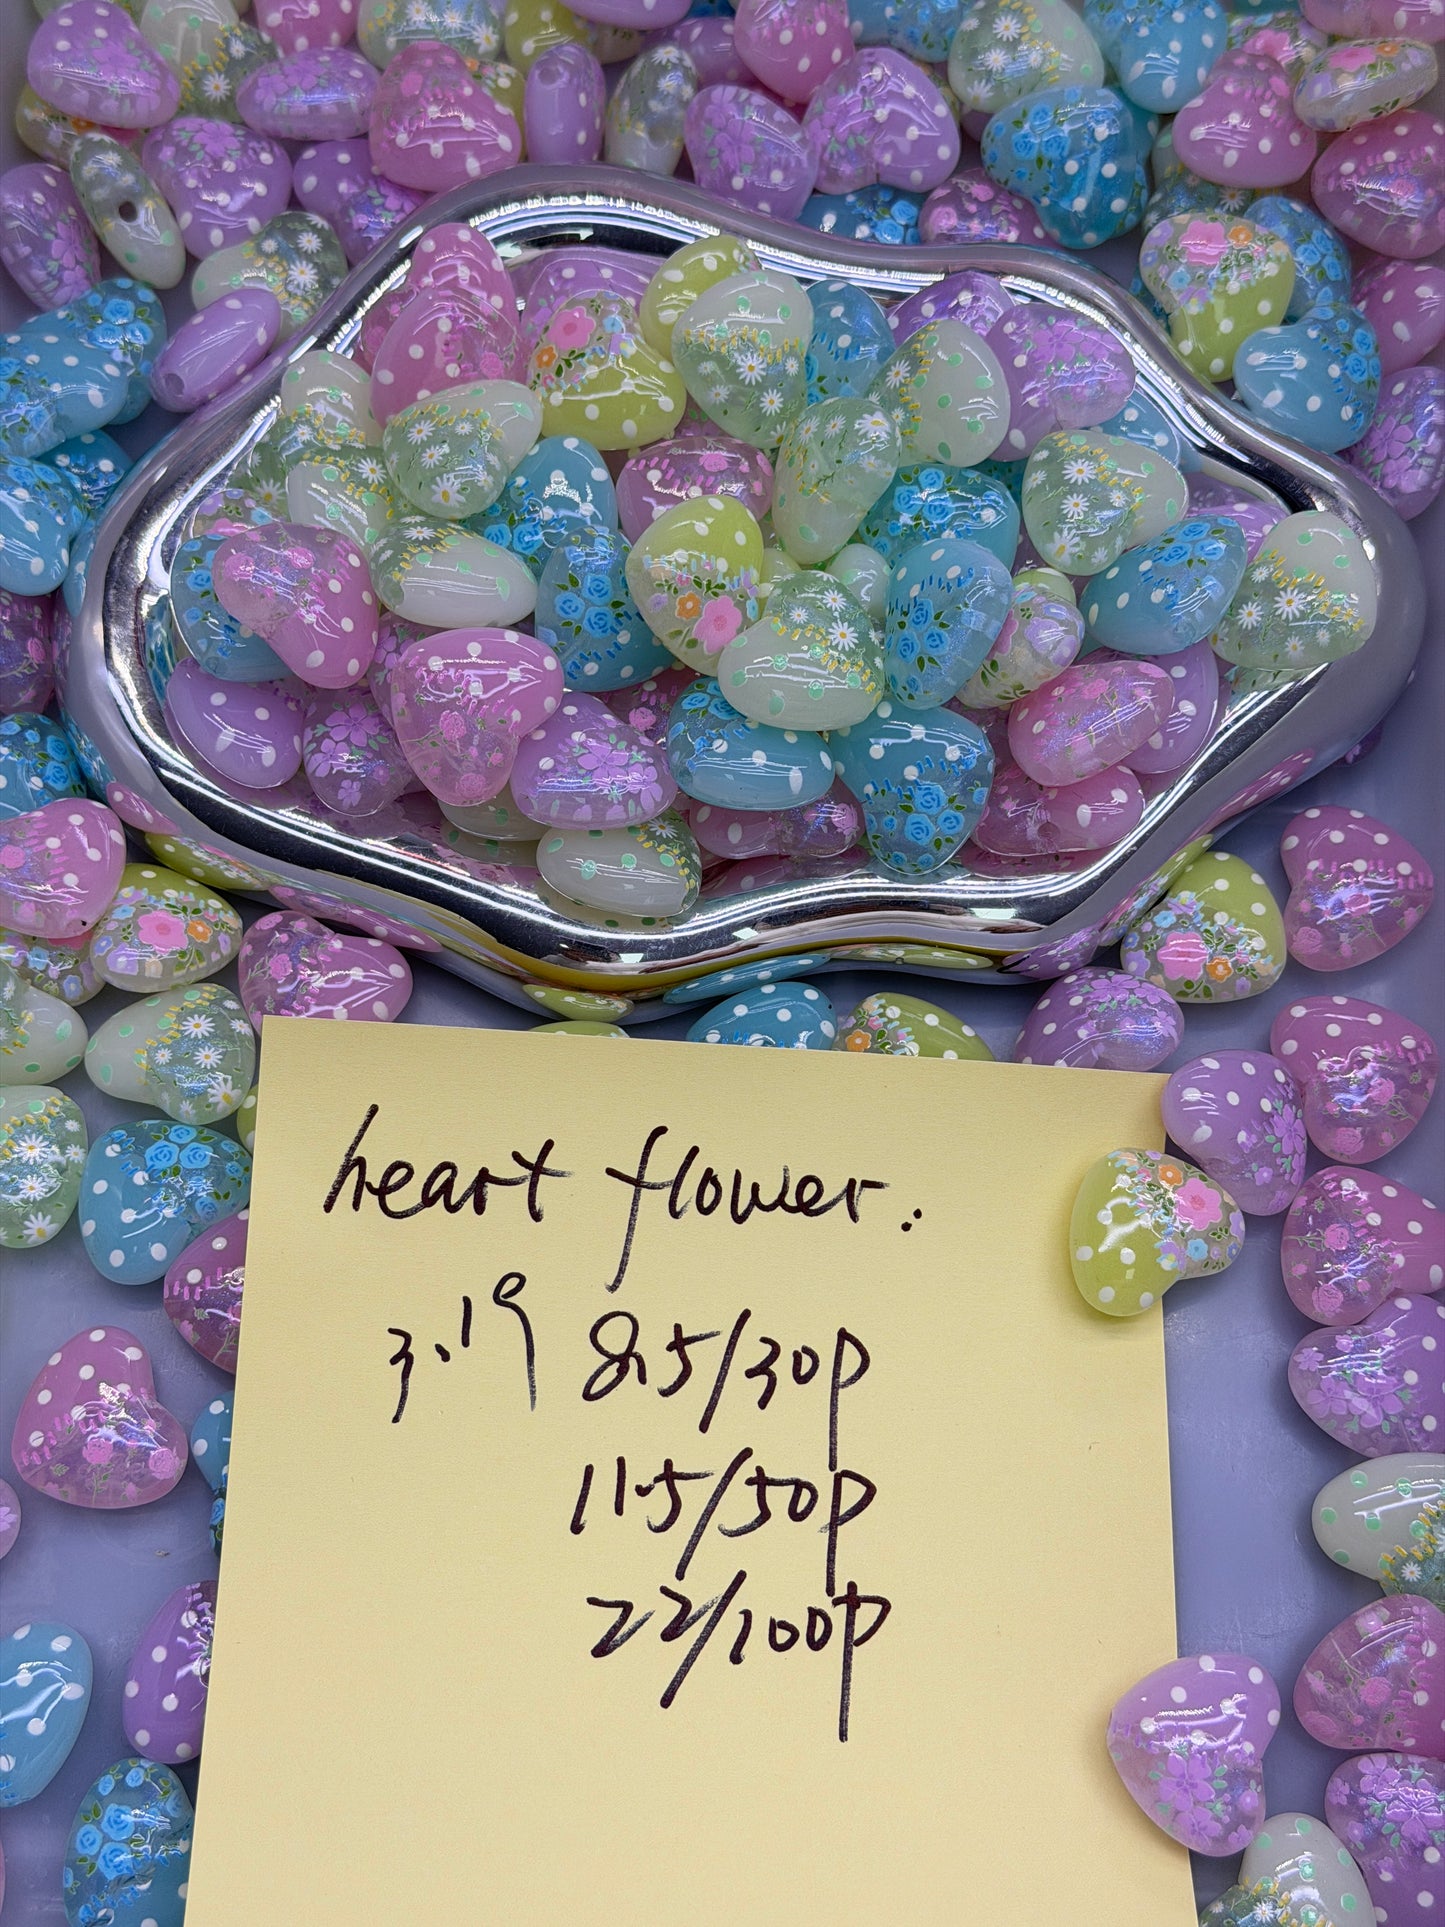 heart flower.
3.19 8.5/30p
11.5/50p
22/100p